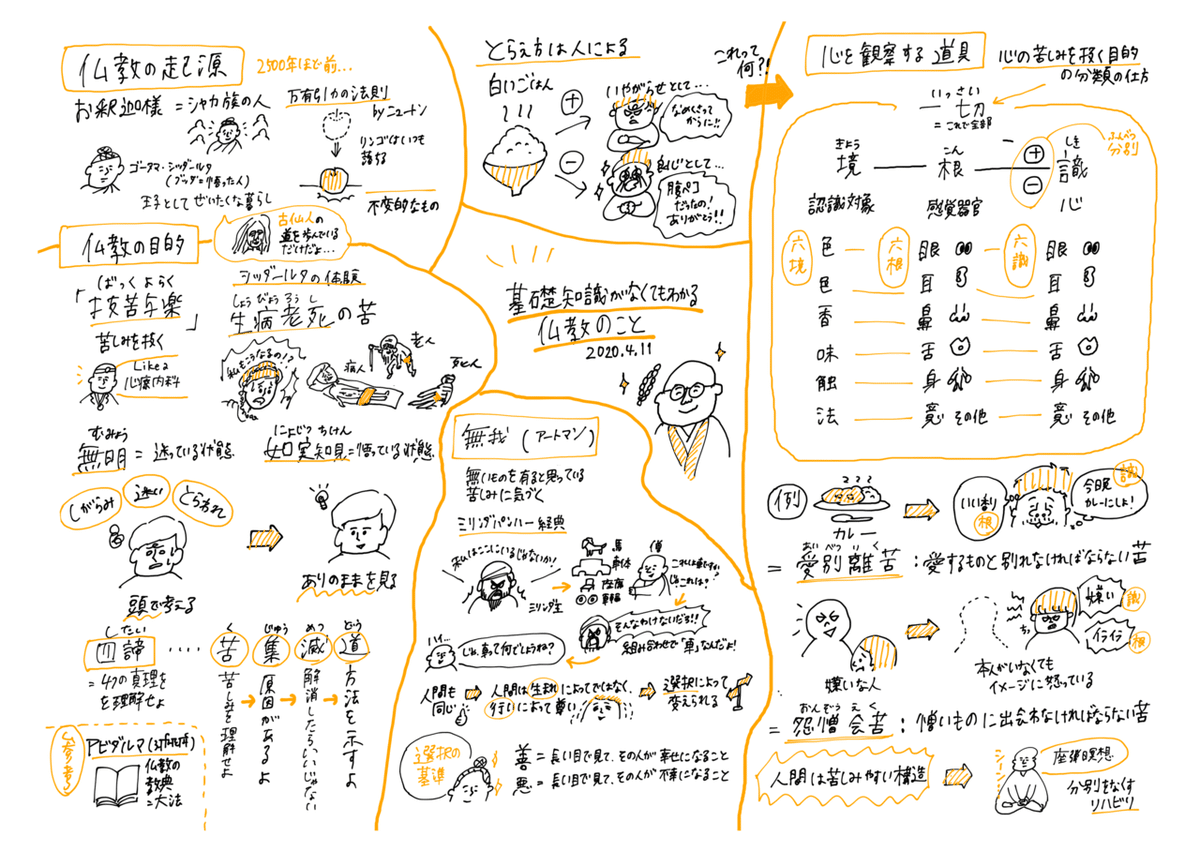 仏教の起源
2500年ほど前…
お釈迦様 = シャカ族の人
ゴータマ・シッダールタ
(ブッダ=悟った人)
王子としてぜいたくな暮らし
万有引力の法則
byニュートン
リンゴはいつも
落ちる
不変的なもの
仏教の目的
古仏人の
道を歩んでいる
だけだよ…
ばっくよらく
「抜苦与楽」
苦しみを抜く
Like a
心療内科
シッダールタの体験
しょうびょうろうし
生病老死の苦
私もこうなるの!?
病人
老人
死人
むみょう
無明=迷っている状態
にょじつちけん
如実知見=悟っている状態
しがらみ
迷い
とらわれ
頭で考える
ありのままを見る
したい
四諦
=4つの真理を
を理解せよ
く
苦
苦しみを理解せよ
じゅう
集
原因があるよ
めつ
滅
解消したらいいじゃない
どう
道
方法を示すよ
参考
アビダルマ
仏教の
教典
=大法
とらえ方は人による
白いごはん
これって
何?!
+
いやがらせとして…
なめくさって
からに!!
-
腹ペコ
だったの!
ありがとう!!
基礎知識がなくてもわかる
仏教のこと
2020.4.11
無我(アートマン)
無いものを有ると思っている
苦しみに気づく
ミリンダパンハー経典
私はここにいるじゃないか!
ミリンダ王
馬
車体
座席
車輪
僧
これは車ですか?
じゃこれは?
そんなわけないだろ!!
組み合わせで「車」なんだよ!
ハイ…
じゃ、車って何でしょうね?
人間も
同じ
人間は生まれによってではなく、
行いによって尊い
選択によって
変えられる
選択の
基準
善=長い目で見て、その人が幸せになること
悪=長い目で見て、その人が不幸になること
心を観察する道具
心の苦しみを抜く目的
の分類の仕方
いっさい
一切
=これで全部
きょう
境
こん
根
+
-
しき
識
ふんべつ
分別
認識対象
感覚器官
心
六境
六根
六識
色 眼 眼
色 耳 耳
香 鼻 鼻
味 舌 舌
触 身 身
法 意 その他 意 その他
例
カレー
いい香り
根
今晩
カレーにしよ!
識
あいべつりく
=愛別離苦:愛するものと別れなければならない苦
嫌いな人
嫌い
識
イライラ
根
本人がいなくても
イメージに怒っている
おんぞうえく
=怨憎会苦:憎いものに出会わなければならない苦
人間は苦しみやすい構造
シーン
座禅瞑想
分別をなくす
リハビリ